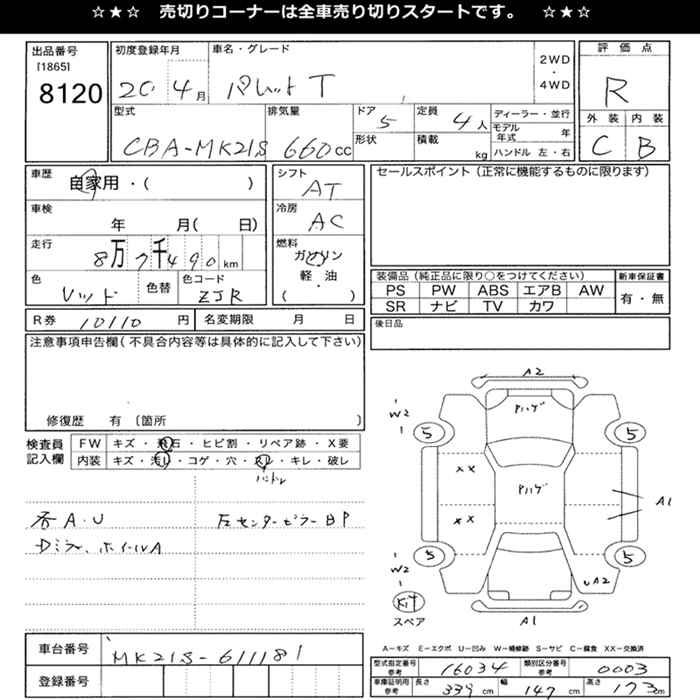 ☆★☆ 売切りコーナーは全車売り切りスタートです。 ☆★☆
出品番号
[1865]
8120
初度登録年月
20 4月
車名・グレード
パレット T
2WD
・
4WD
評価点
R
外装 内装
C B
型式
CBA-MK21S
排気量
660cc
ドア
5
形状
定員
4人
積載
kg
ディーラー・並行
モデル年式 年
ハンドル 左・右
車歴
自家用・( )
車検
年 月( 日)
走行
8万7千490km
色
レッド
色替
色コード
ZJR
シフト
AT
冷房
AC
燃料
ガソリン
・
軽・油
・
( )
セールスポイント(正常に機能するものに限ります)
装備品(純正品に限り○をつけてください)
PS PW ABS エアB AW
SR ナビ TV カワ
新車保証書
有・無
R券 10110円
名変期限 月 日
後日品
注意事項申告欄(不具合内容等は具体的に記入して下さい)
修復歴 有 〔箇所 〕
検査員記入欄
FW キズ・飛石・ヒビ割・リペア跡・X要
内装 キズ・汚れ・コゲ・穴・スレ・キレ・破レ
ハンドル
A・U
Dミラー、ホイールA
左センターピラーBP
A2
W2
5
5
Pハゲ
XX
Pハゲ
XX
A1
5
5
W2
UA2
Kit
スペア
A1
A−キズ E−エクボ U−凹み W−補修跡 S−サビ C−腐食 XX−交換済
車台番号 MK21S-611181
登録番号
型式指定番号 参考 16034
類別区分番号 参考 0003
車庫証明用 参考 長さ 339cm 幅 147cm 高さ 173cm